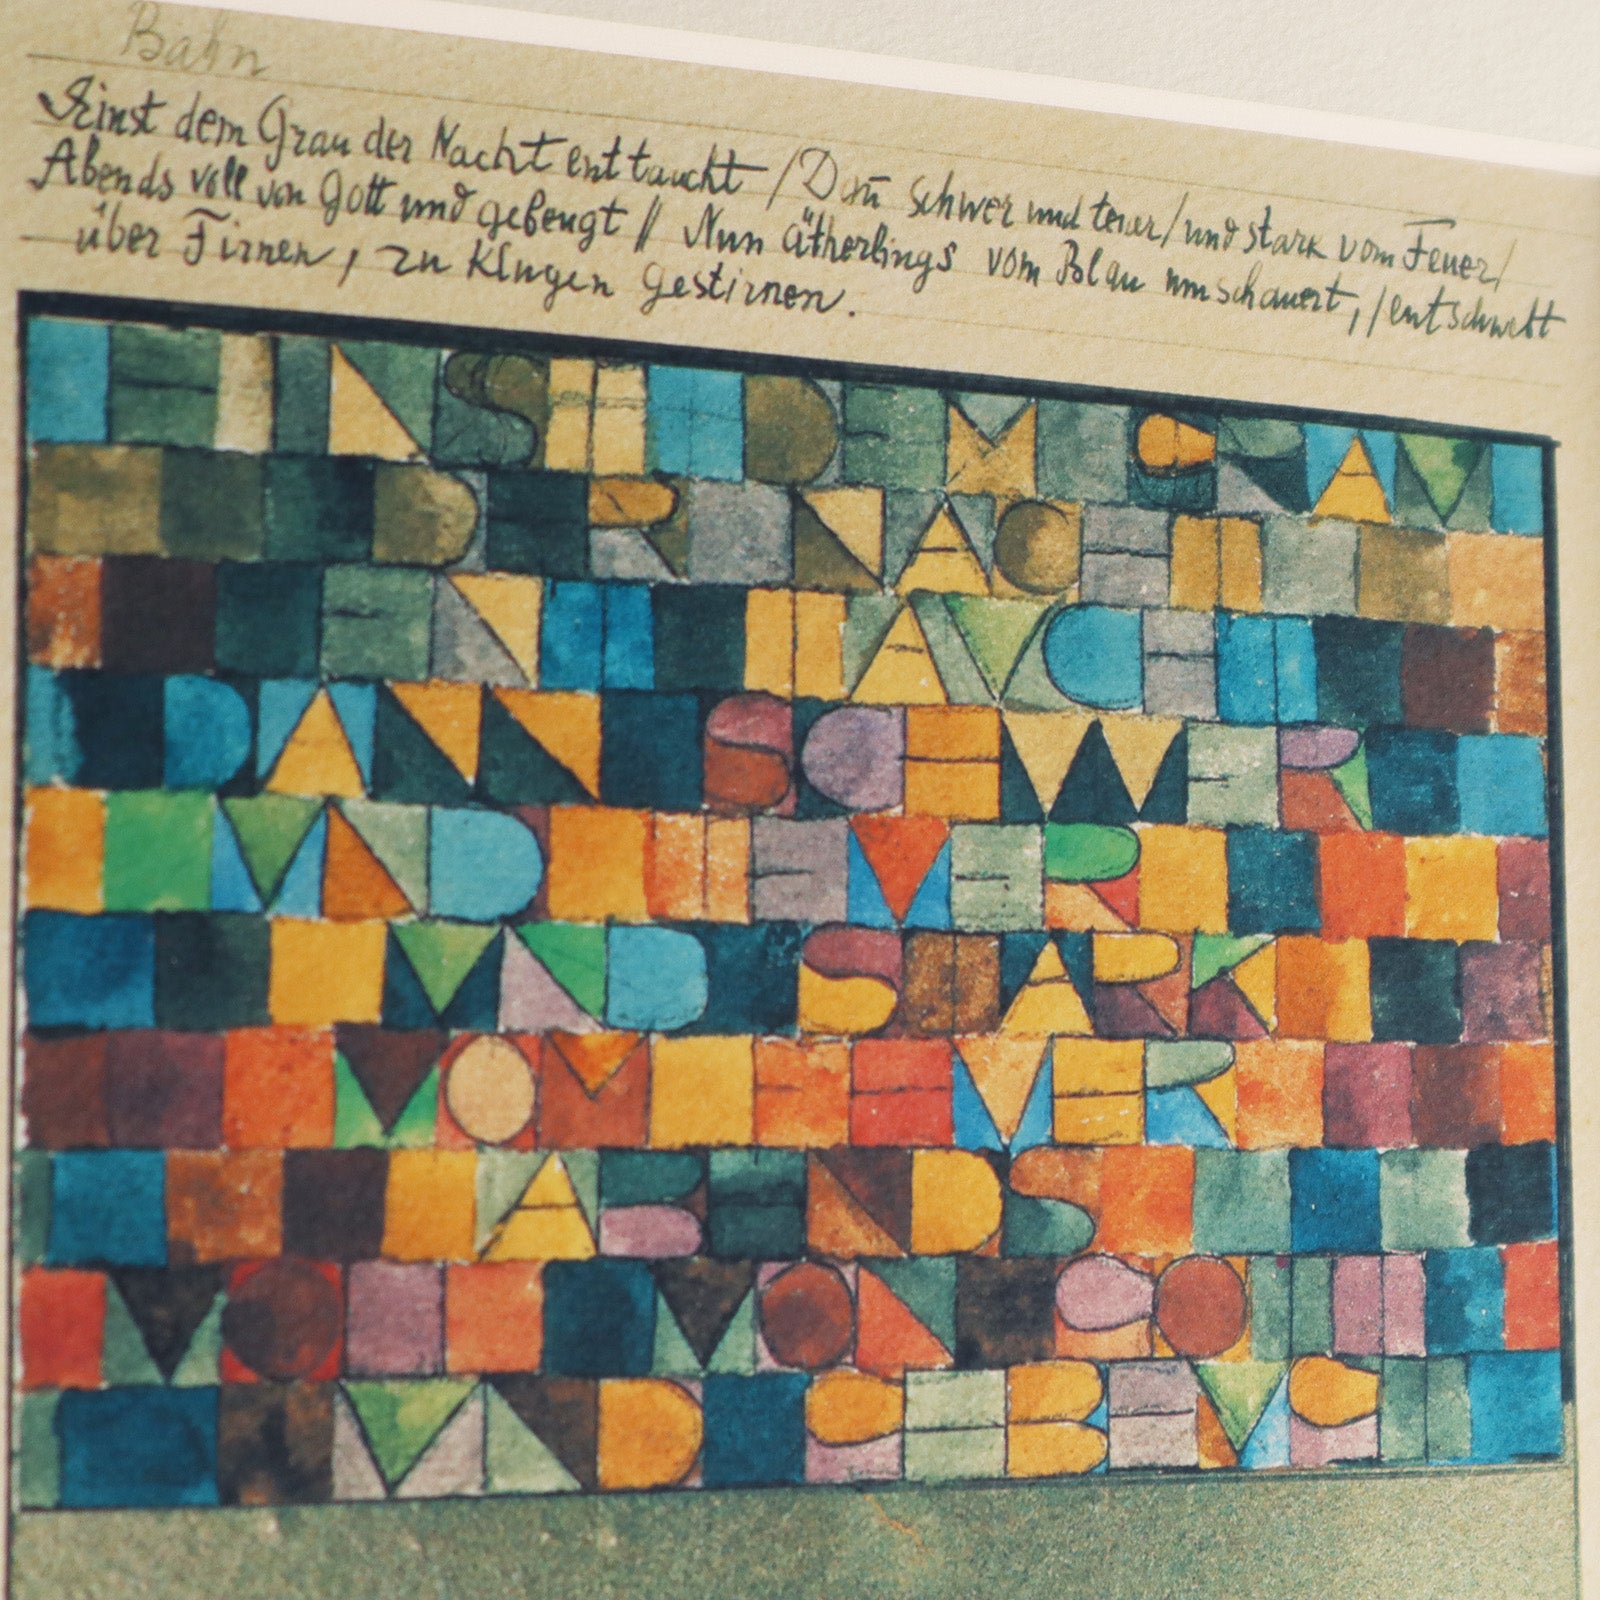 Bahn
Einst dem Grau der Nacht enttaucht / Dañ schwer und teuer / und stark vom Feuer /
Abends voll von Gott und gebeugt // Nun ätherlings vom Blau umschauert, / entschwebt
über Firnen, zu klugen Gestirnen.
EINST DEM GRAU
DER NACHT
ENTTAUCHT
DANN SCHWER
UND TEUER
UND STARK
VOM FEUER
ABENDS
VOLL VON GOTT
UND GEBEUGT